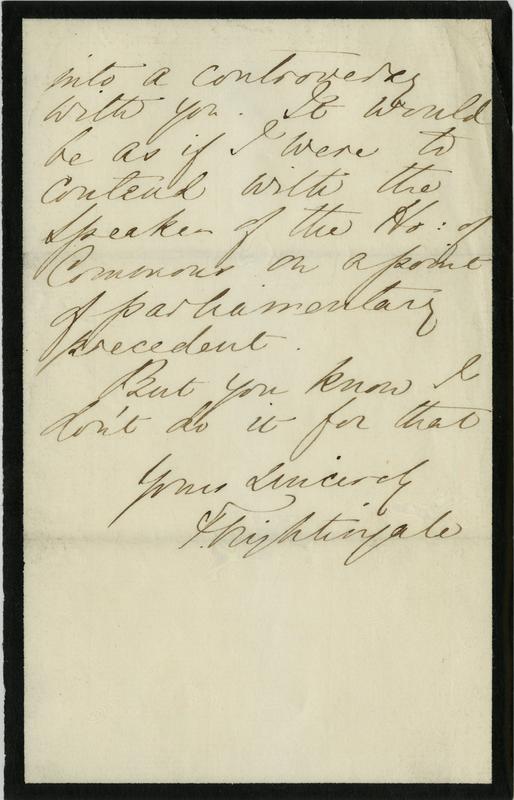 into a controversy
with you. It would
be as if I were to
contend with the
Speaker of the Ho: of
Commons on a point
of parliamentary
precedent.
But you know I
don't do it for that
Yours sincerely
F. Nightingale